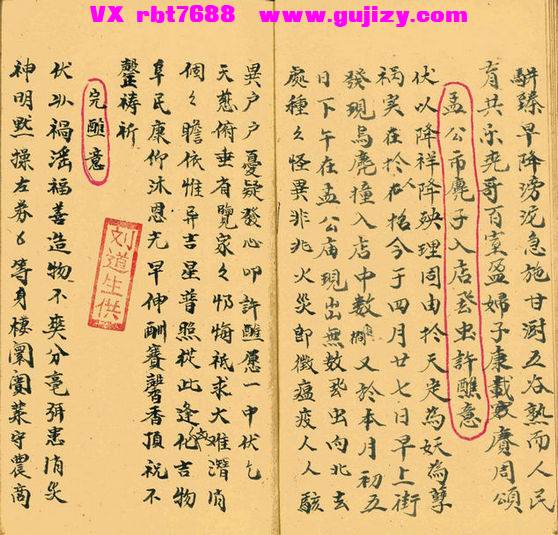 VX rbt7688 www.gujizy.com
駢臻早降滂沱急施甘澍五谷熟而人民
育共樂堯哥百室盈婦子康載賡周頌
孟公市麂子入店發虫許醮意
伏以降祥降殃理固由於天定為妖為孽
禍实在於人招今于四月廿七日早上街
發現烏麂撞入店中数又於本月初五
日下午在孟公庙現出無数發虫向北去
處種々怪異非兆火災即徵瘟疫人人駭
異户户憂疑發心叩許醮愿一中伏乞
天慈俯垂省覽家々忉悔祇求大难潛消
個々瞻依惟吉星普照從此逢化吉物
阜民康仰沐恩光早伸酬賽馨香頂祝不
禱祈
完醮意
伏以禍淫福善造物不爽分毫弭患消災
神明默操左券等身棲闤業守農商
刘道生供